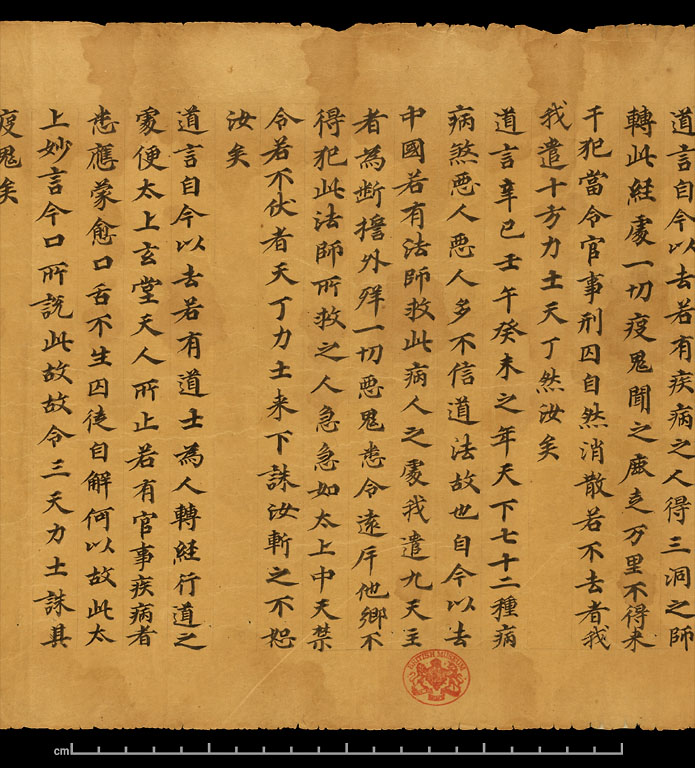 道言自今以去若有疾病之人得三洞之師
轉此経處一切疫鬼聞之䴢走万里不得来
干犯當令官事刑囚自然消散若不去者我
我遣十方力士天丁然汝矣
道言辛巳壬午癸未之年天下七十二種病
病煞恶人恶人多不信道法故也自今以去
中國若有法師救此病人之處我遣九天主
者為断擔外殃一切恶鬼悉令遠斥他鄉不
得犯此法師所救之人急急如太上中天禁
令若不伏者天丁力士来下誅汝斬之不恕
汝矣
道言自今以去若有道士為人轉経行道之
處便太上玄堂天人所止若有官事疾病者
悉應蒙愈口舌不生囚徒自解何以故此太
上妙言今口所説此故故令三天力士誅其
疫鬼矣
BRITISH MUSEUM
cm